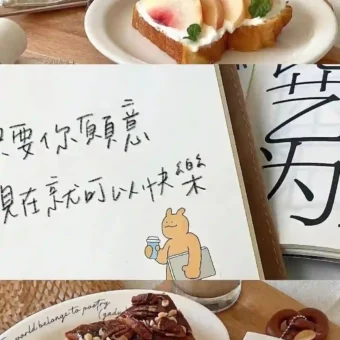 要你願意
現在就可以快樂
为
world belongs to poetry